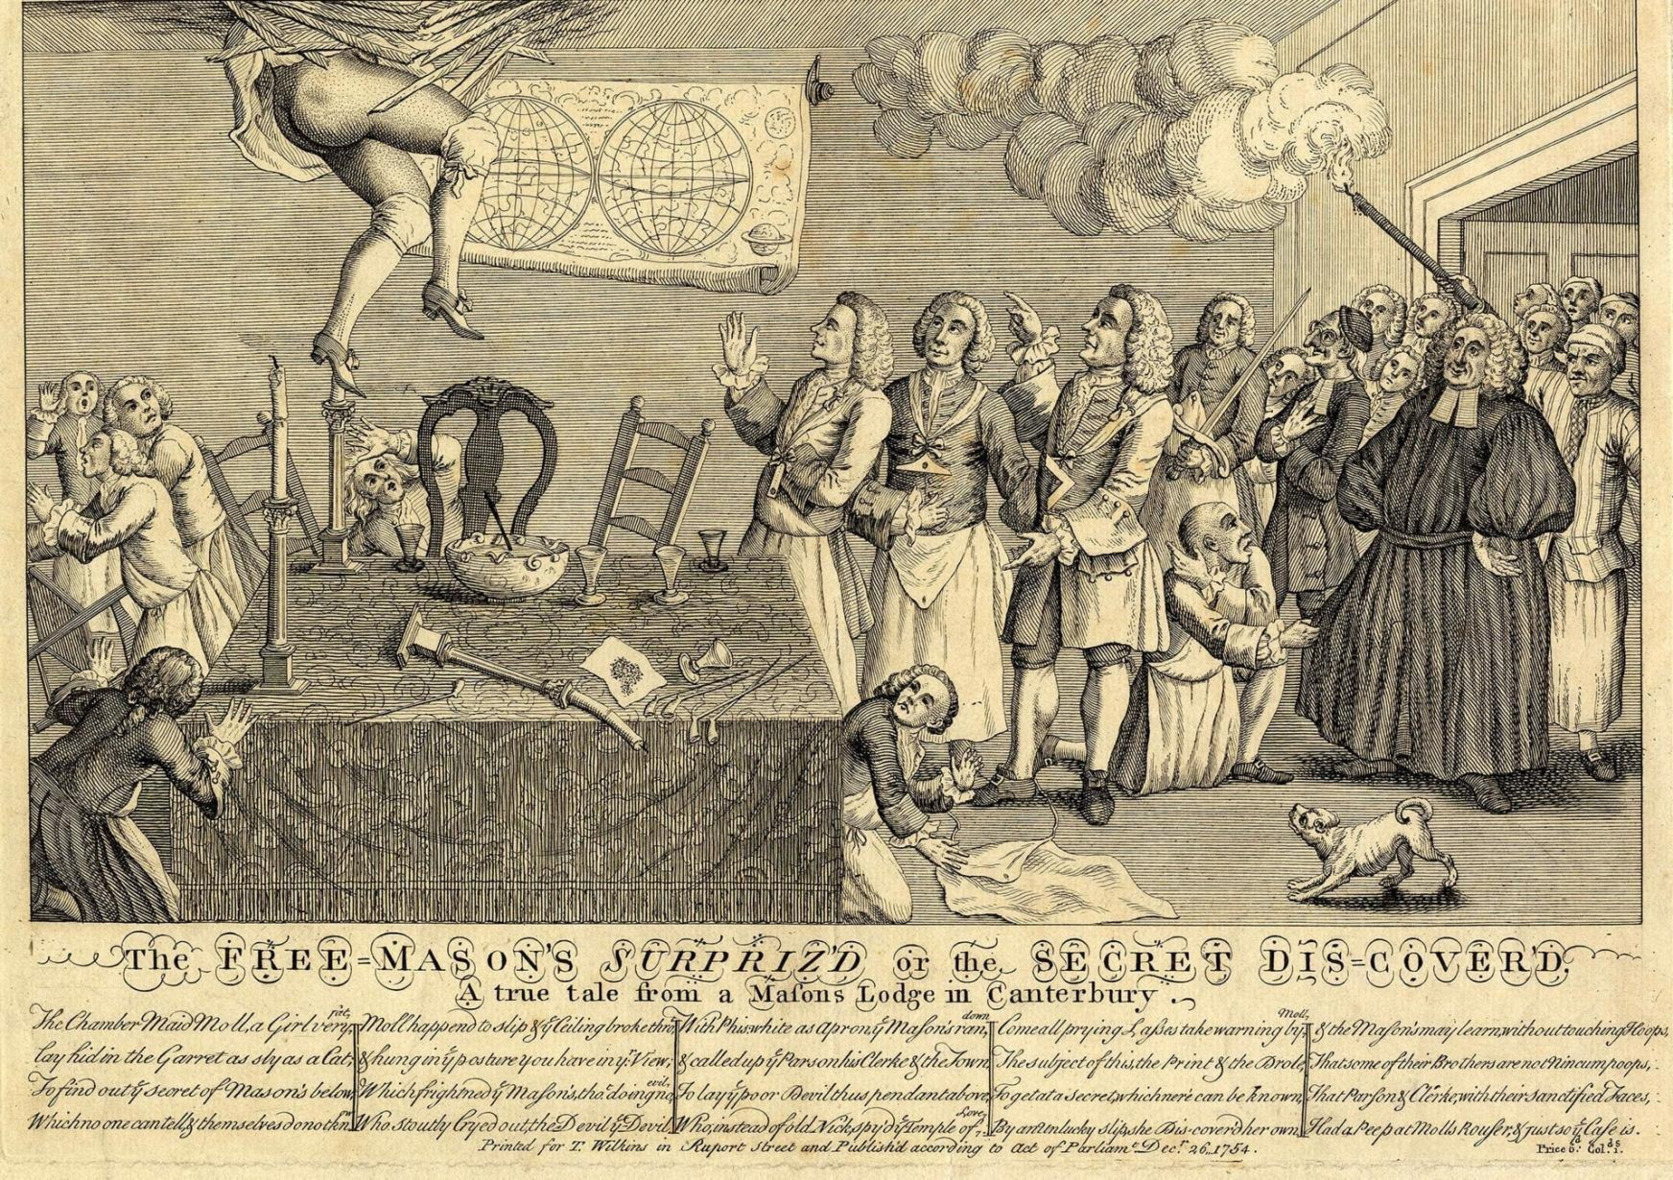 The FREE=MASON'S SURPRIZ'D or the SECRET DIS=COVER'D.
A true tale from a Maſons Lodge in Canterbury.
The Chamber Maid Moll, a Girl very fat,
lay hid in the Garret as sly as a Cat;
To find out yͤ secret of Mason's below,
Which no one can tell & themselves do not knͦʷ.
Moll happend to slip & yͤ Ceiling broke thrͦ
& hung in yͤ posture you have in yͬ View,
Which frightned yͤ Maſsons, thoͤ doing no evil,
Who stoutly Cryed out, the Devil yͤ Devil
With Phis white as Apron, yͤ Maſons ran down
& called up yͤ Parson his Clerke & the Town
To lay yͤ poor Devil thus pendant above
Who, instead of old Nick spy'd yͤ Temple of Love,
Come all prying Laſses take warning by Moll,
The subject of this, the Print & the Drole,
To get at a secret, which ne'er can be known,
By an unlucky slip, she Dis-coverd her own.
& the Maſons may learn, without touching Hoops,
That some of their Brothers are not Nincumpoops,
That Parſon & Clerke, with their sanctified Faces,
Had a Peep at Molls Rouſer, & just so yͤ Caſe is.
Printed for T. Wilkins in Ruport Street and Publish'd according to Act of Parliamᵗ. Decʳ. 26, 1754.
Price 6ᵈ. Colᵈˢ 1.